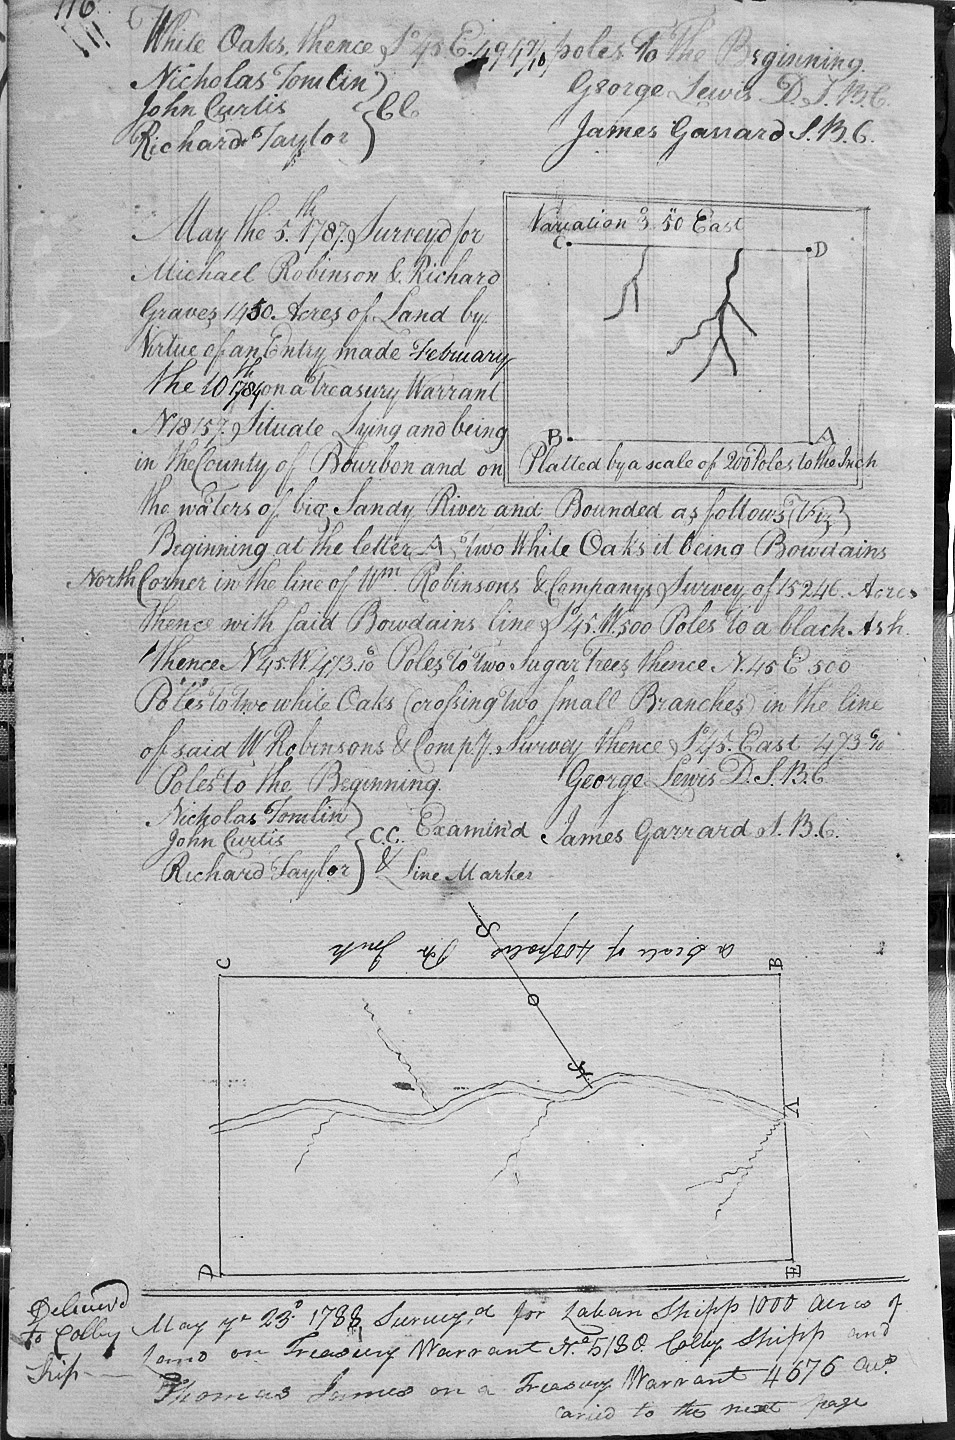 116
White Oaks, thence So 45 E. 494 poles to the Beginning
Nicholas Tomlin
John Curtis } CC
Richard Taylor
George Lewis D. S. B. C.
James Garrard S. B. C.
May the 5th 1787 Surveyd for
Michael Robinson & Richard
Graves 1450 Acres of Land by
Virtue of an Entry made February
the 10th 1784 on a Treasury Warrant
N 18157. Situate Lying and being
in the County of Bourbon and on
the waters of big Sandy River and Bounded as follows (Viz)
Variation 3°.50" East
C
D
B
A
Platted by a scale of 200 Poles to the Inch
Beginning at the letter A, two White Oaks it being Bowdains
North Corner in the line of Wm. Robinsons & Companys Survey of 15246. Acres
thence with said Bowdains line So 45. W. 500 Poles to a black Ash.
thence N 45 W 473 6/10 Poles to two Sugar trees thence N. 45 E 500
Poles to two white Oaks (crossing two small Branches) in the line
of said W Robinsons & Comp.y. Survey thence So 45. East 473 6/10
Poles to the Beginning.
George Lewis D. S. B. C
Nicholas Tomlin
John Curtis } C.C.
Richard Taylor } & Line Marker
Examin'd James Garrard S. B. C.
a Scale of 400 poles Pr Inch
S
C
B
A
D
E
Deliver'd
to Colby
Ship
May ye 23d. 1788 Survey,d for Laban Shipp 1000 acres of
Land on Treasury Warrant No 5130. Colby Shipp and
Thomas James on a Treasury Warrant 4676 acrs
caried to the next page